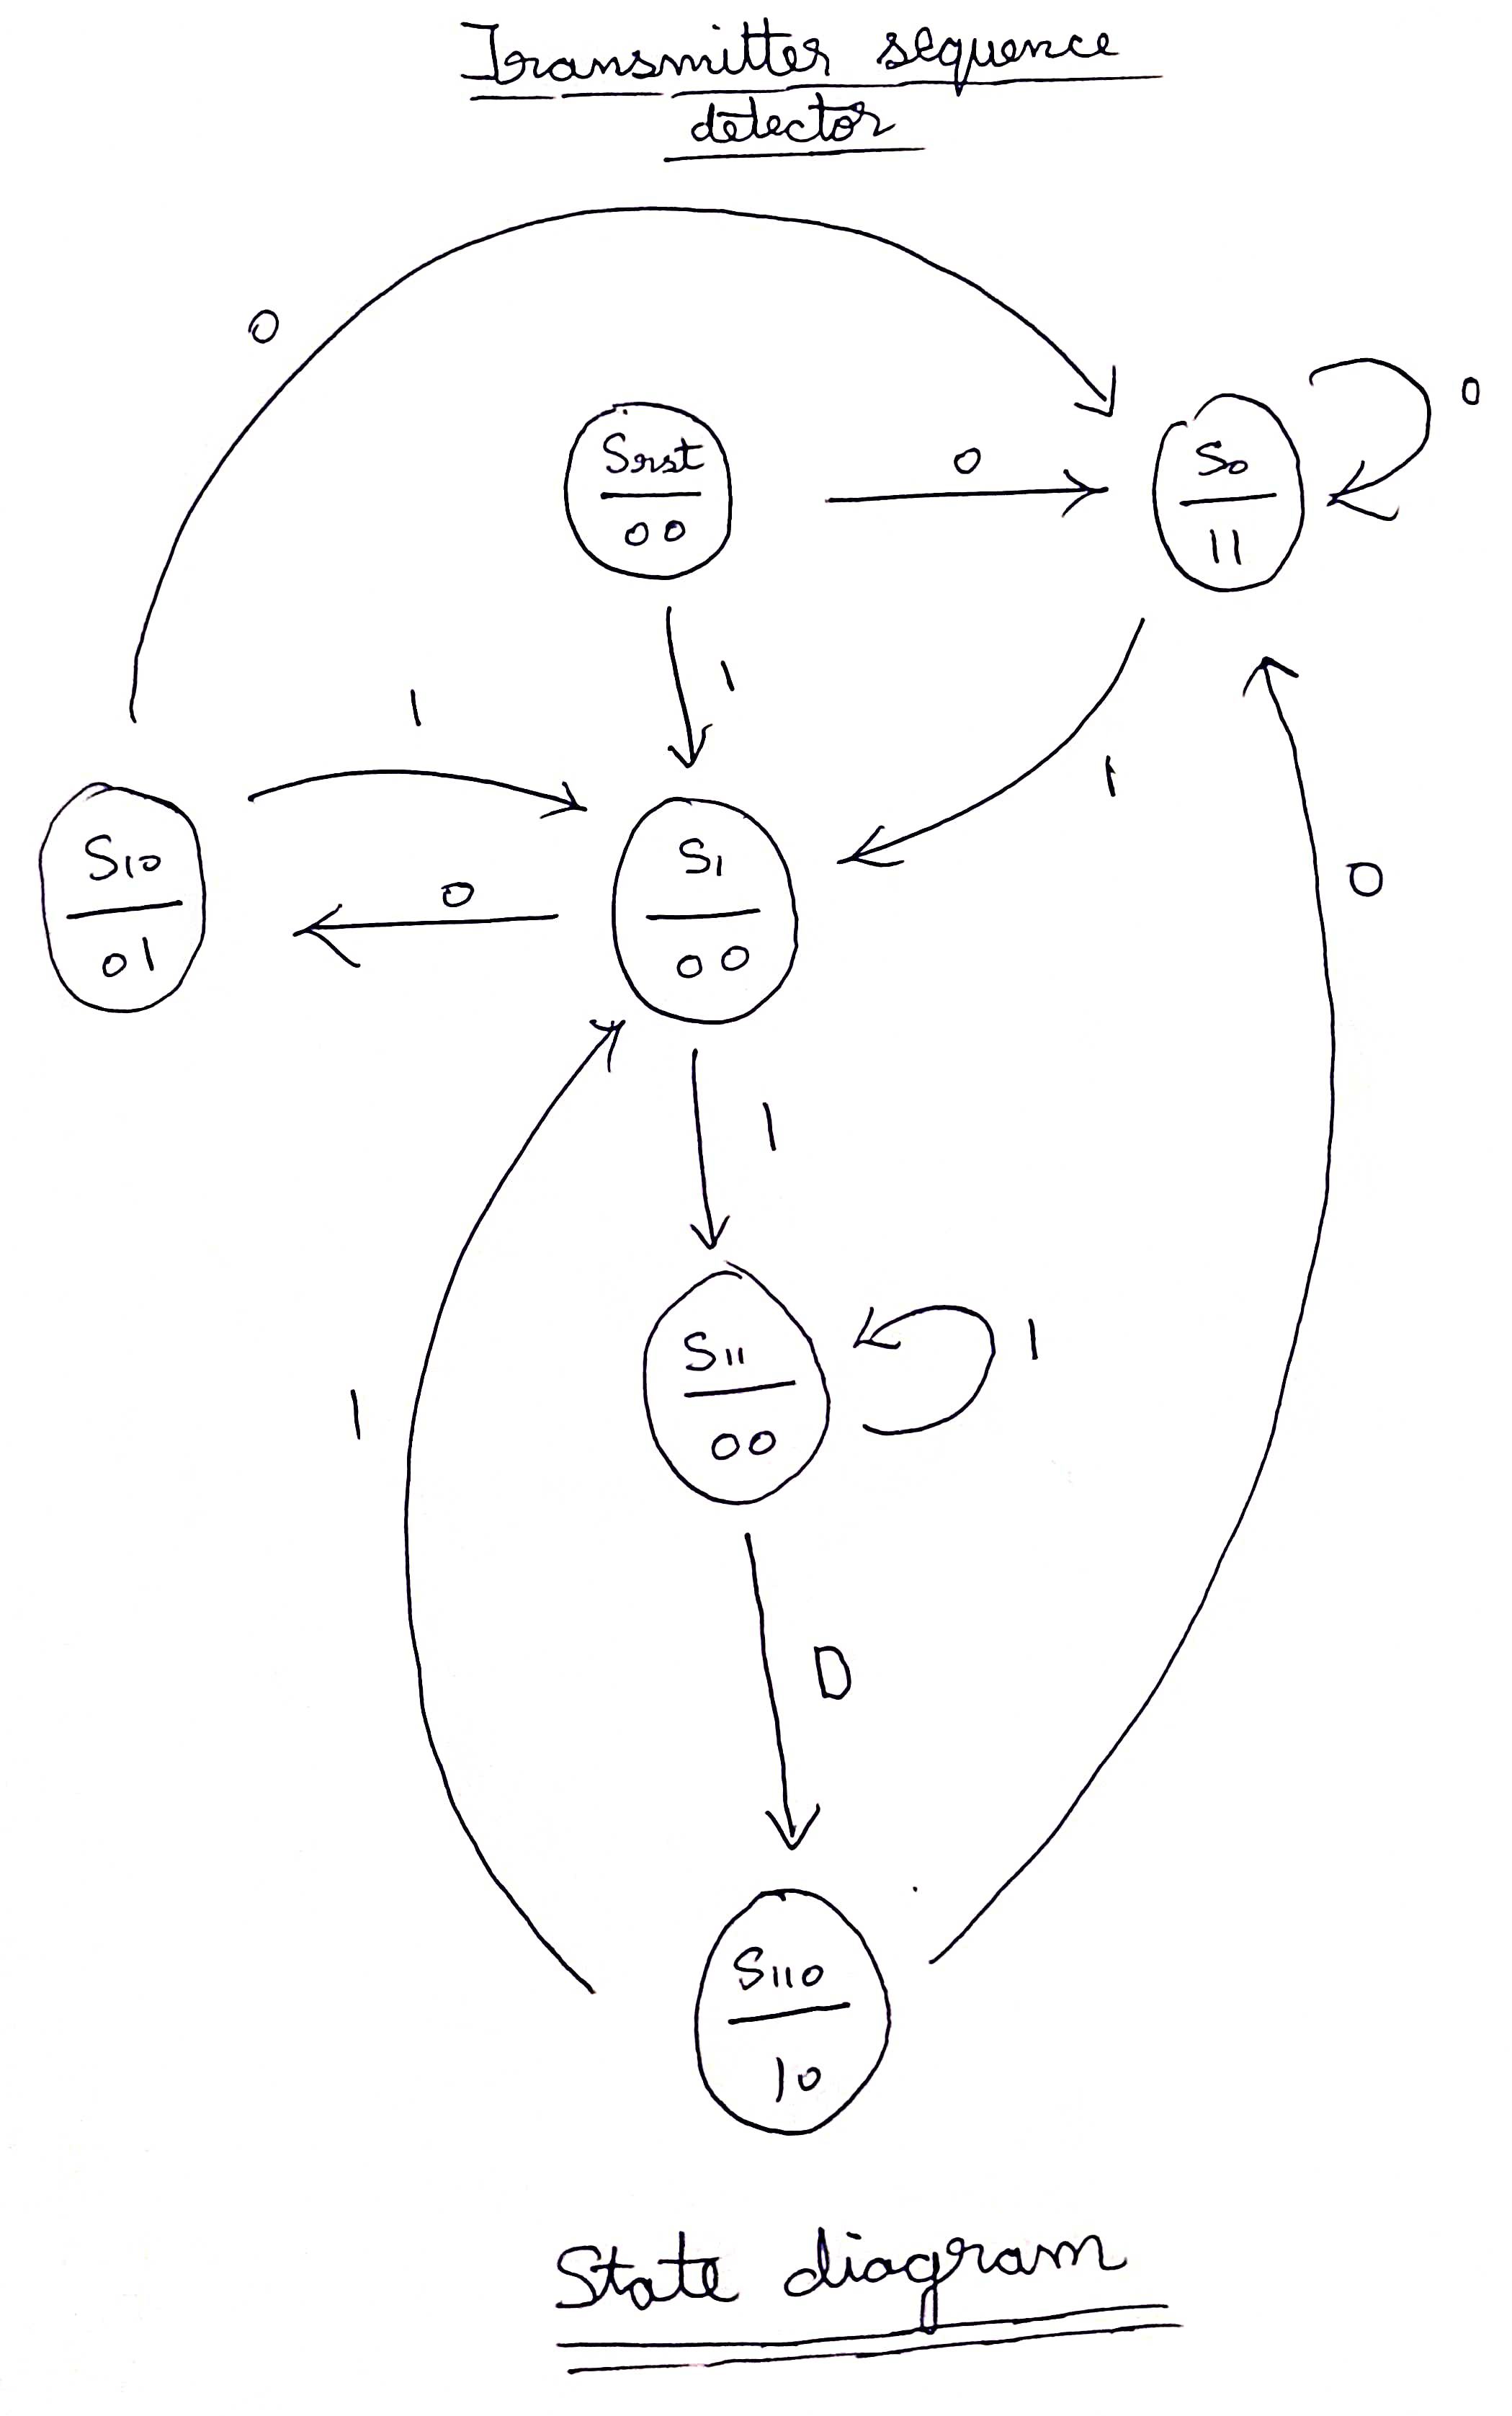 Transmitter sequence
detector
0
0
Srst
00
0
S0
11
1
1
1
S10
01
0
S1
00
0
1
S11
00
1
1
0
S110
10
State diagram